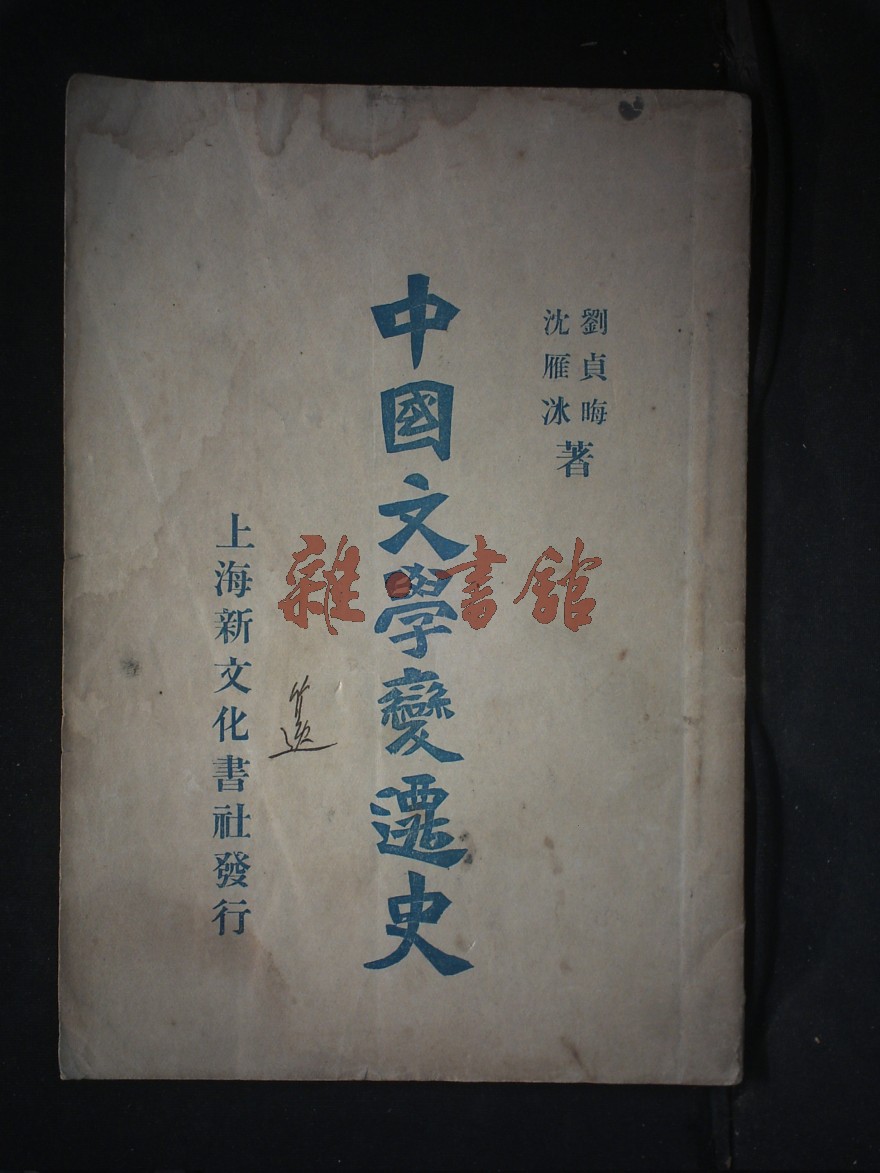 劉貞晦
沈雁冰
著
中國文學變遷史
上海新文化書社發行
雜·書館